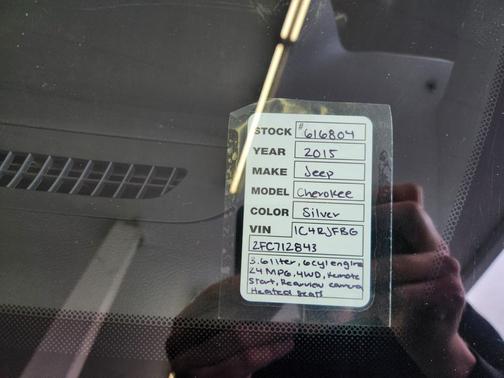 STOCK #616804
YEAR 2015
MAKE Jeep
MODEL Cherokee
COLOR Silver
VIN 1C4RJFBG
2FC712843
3.6 liter, 6cyl engine
24 MPG, 4WD, Remote
Start, Rearview camera
Heated Seats